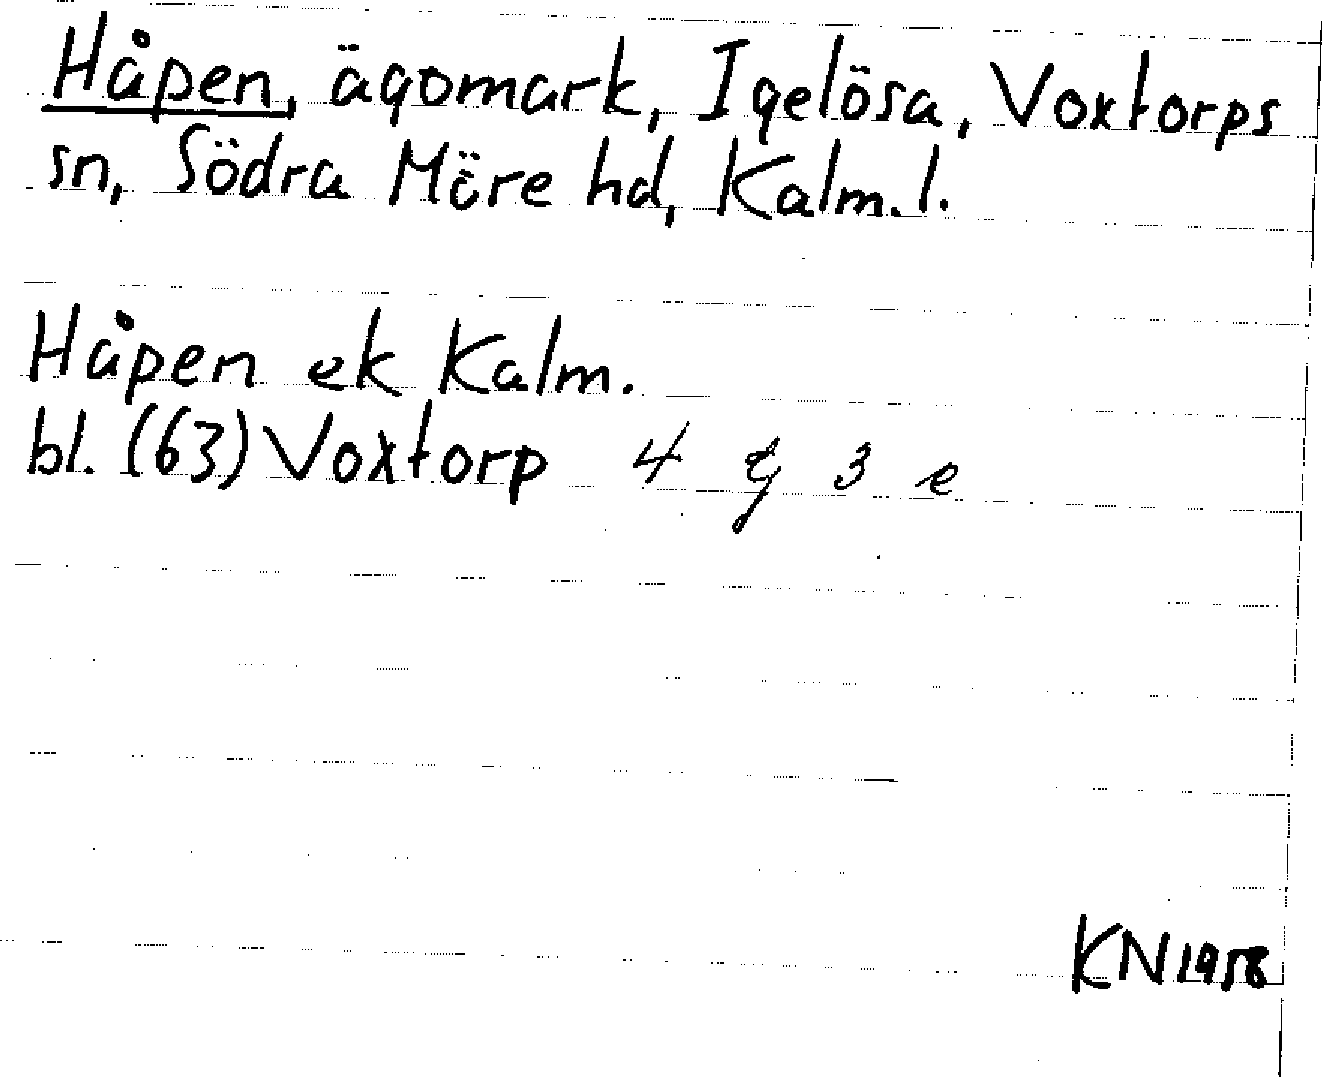 Håpen, ägomark, Igelösa, Voxtorps
sn, Södra Möre hd, Kalm. l.
Håpen ek Kalm.
bl. (63) Voxtorp 4 g 3 e
KN 1958